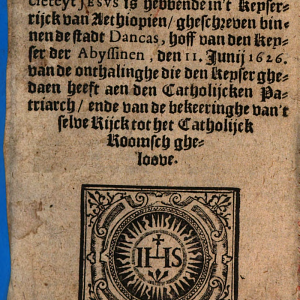 cieteyt JESVS is hebbende in't Keyser-
rijck van Aethiopien / gheschreven bin-
nen de stade Dancas, hoff van den Key-
ser der Abyssinen, den 11. Junij 1626.
van de onthalinghe die den Keyser ghe-
daen heeft aen den Catholijcken Pa-
triarch / ende van de bekeeringhe van't
selve Rijck tot het Catholijck
Roomsch ghe-
loove.
IHS